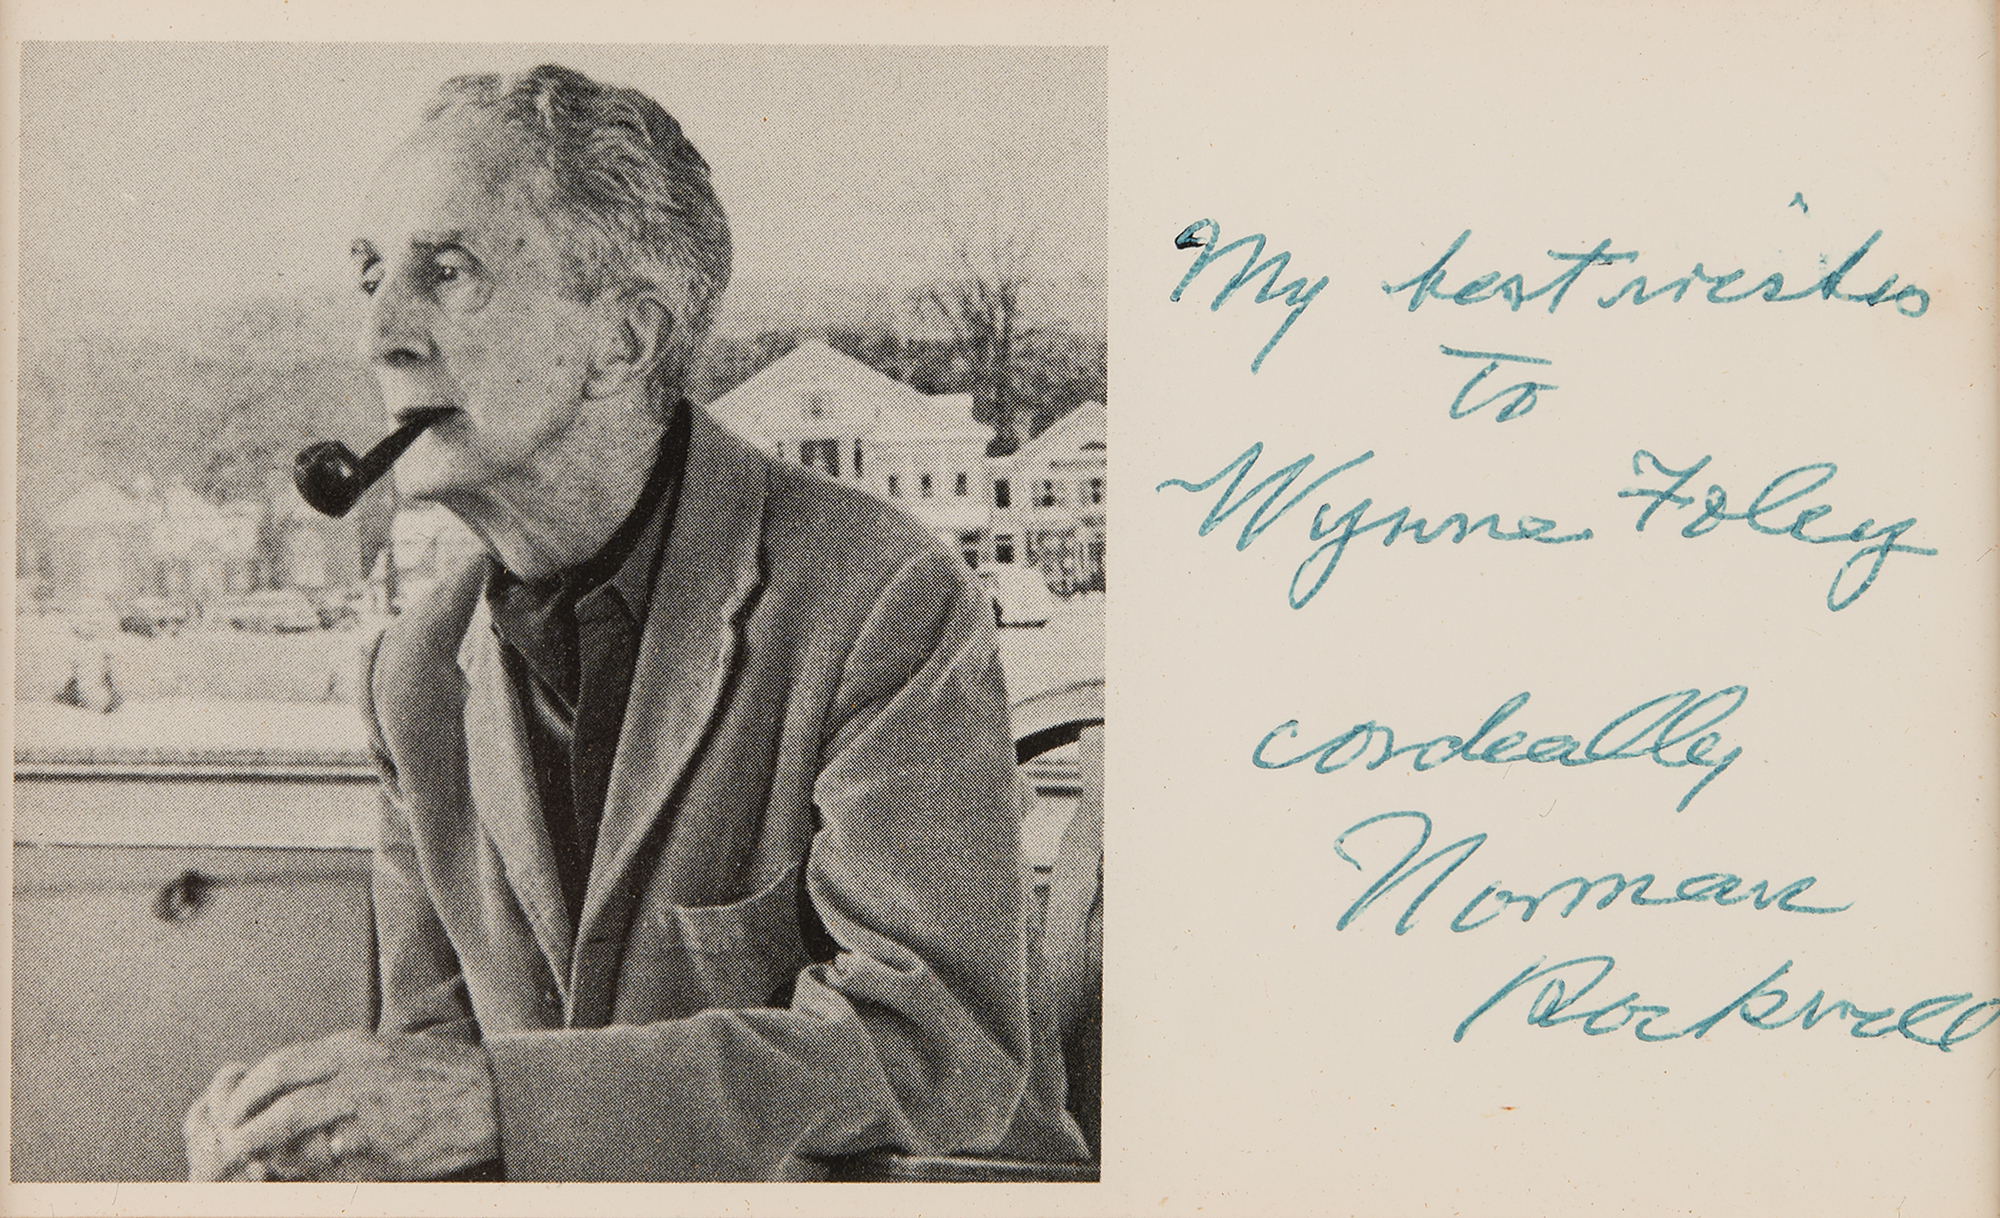 My best wishes
To
Wynne Foley
cordially
Norman
Rockwell